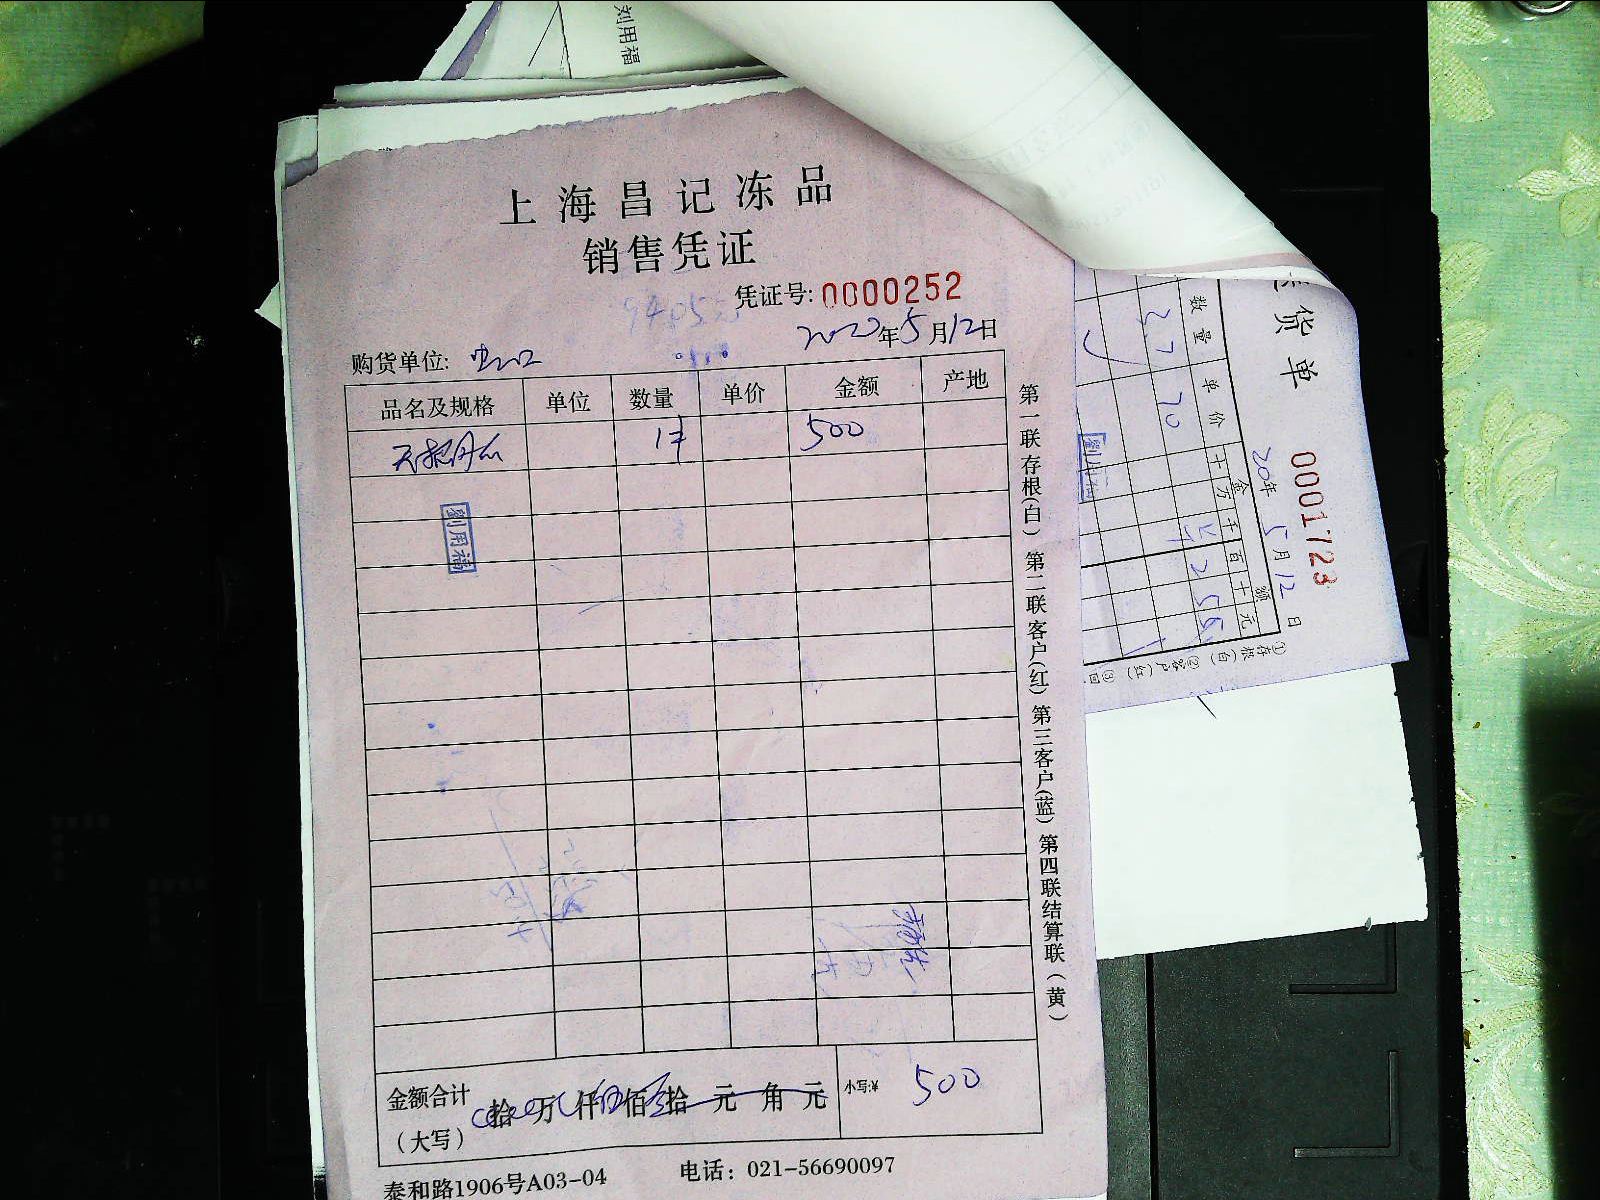 刘用福
上海昌记冻品
销售凭证
凭证号: 0000252
2020年5月12日
购货单位:
品名及规格 单位 数量 单价 金额 产地
1件 500
劉用福
第一联存根(白) 第二联客户(红) 第三客户(蓝) 第四联结算联(黄)
金额合计(大写) 拾 万 仟 佰 拾 元 角 元 小写:¥ 500
泰和路1906号A03-04 电话: 021-56690097
货单
0001723
20年5月12日
数量 单价 金额
十万千百十元
27 70
劉用福
①存根(白) ②客户(红) ③回